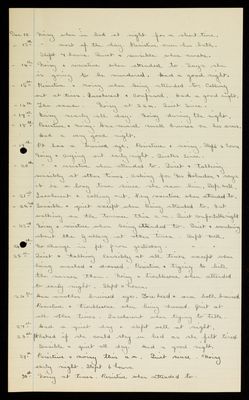 Dec 12. Noisy when in bed at night for a short time.
13th rest of the day. Resistive over her bath.
Slept 4 hours. Quiet & sensible when awake.
14th Noisy & resistive when attended to. Says she
is going to be murdered. Had a good night.
15th Resistive & noisy when being attended to. Calling
out at times. Incoherent & confused. Had a good night.
16th The same. Noisy at 3 a.m. Quiet since.
17th Noisy nearly all day. Noisy during the night.
18th Resistive & noisy. Has several small bruises on her arms.
Had a very good night.
19th Pt has a bruised eye. Resistive & noisy. Slept 4 hours
Noisy & crying out early night. Quiet since.
20th resistive when attended to. Quiet & talking
sensibly at other times. Asking for Dr &
it is a long time since she seen him. Slept well.
21st Incoherent & calling out. Noisy resistive when attended to.
22nd Sensible & quiet except when being attended to, but
walking on the this a.m. Quiet
23rd Noisy & resistive when being attended to. Quiet & smoking
about the at other times. Slept well.
24th No change in pt from yesterday.
25th Quiet & talking sensibly at all times except when
being washed & dressed. Resistive & trying to bite
the nurses then. Noisy & troublesome when attended
to early night. Slept hours.
26th Has another bruised eye. Forehead & arm both bruised.
Resistive & troublesome when being dressed. Quiet at
all other times. Incoherent when trying to talk.
27th Had a quiet day & slept well at night.
28th Asked if she could stay in bed as she felt tired
Sensible & quiet all day. Had a good night.
29th Resistive & noisy this a.m. Quiet since. Noisy
early night. Slept 6 hours
30th Noisy at times. Resistive when attended to